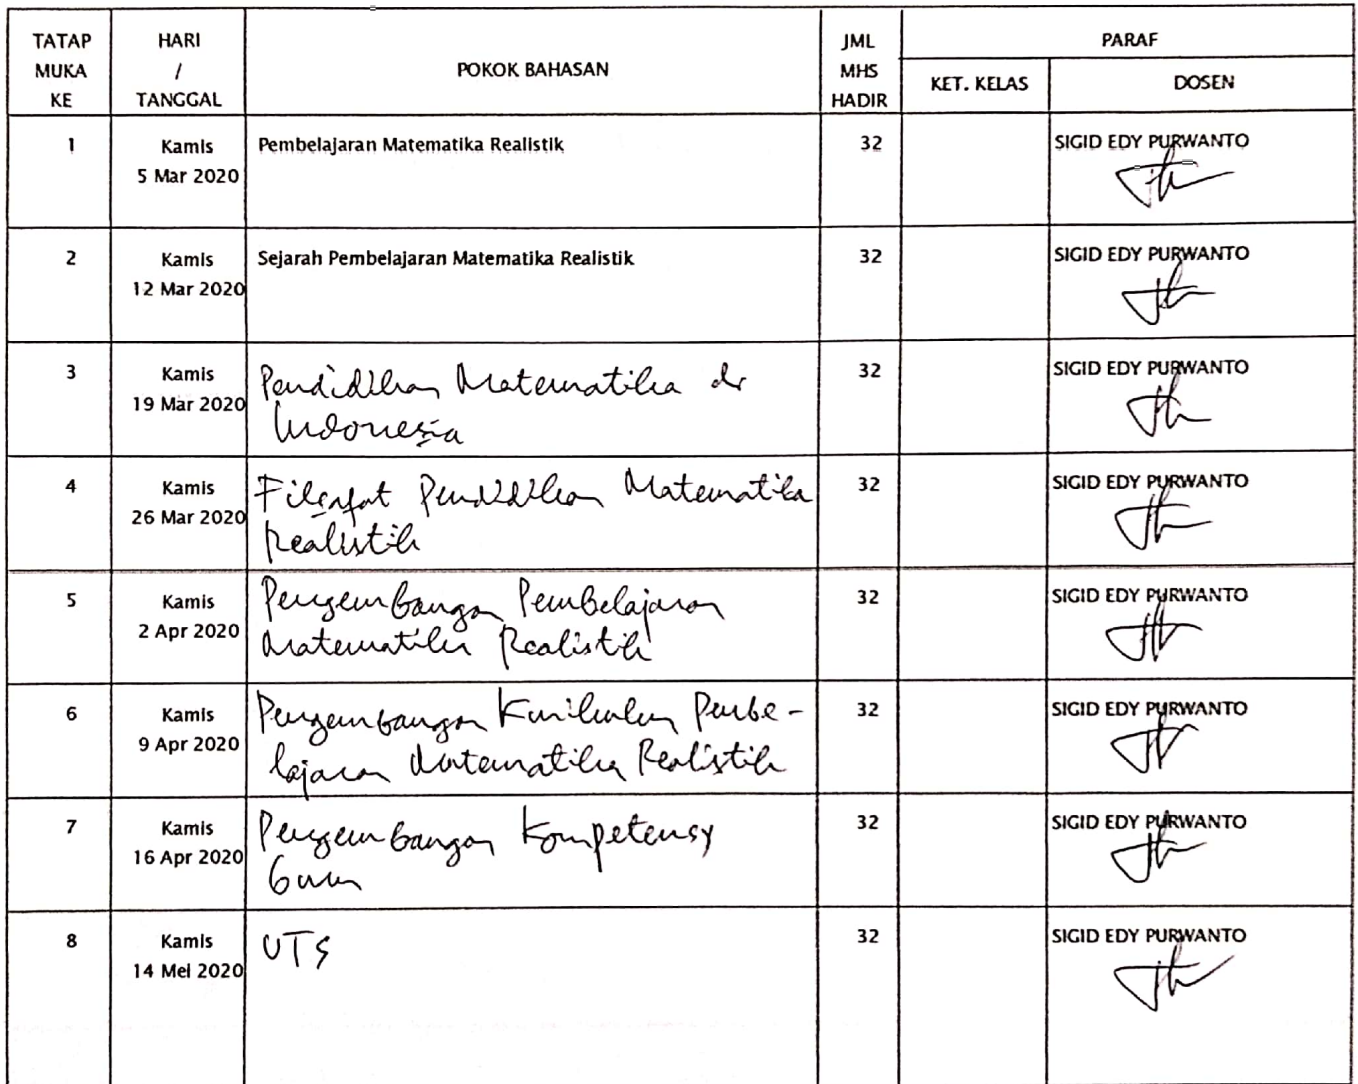 TATAP MUKA KE
HARI / TANGGAL
POKOK BAHASAN
JML MHS HADIR
PARAF
KET. KELAS
DOSEN
1
Kamis
5 Mar 2020
Pembelajaran Matematika Realistik
32
SIGID EDY PURWANTO
2
Kamis
12 Mar 2020
Sejarah Pembelajaran Matematika Realistik
32
SIGID EDY PURWANTO
3
Kamis
19 Mar 2020
Pendidikan Matematika di
Indonesia
32
SIGID EDY PURWANTO
4
Kamis
26 Mar 2020
Filsafat Pendidikan Matematika
Realistik
32
SIGID EDY PURWANTO
5
Kamis
2 Apr 2020
Pengembangan Pembelajaran
Matematika Realistik
32
SIGID EDY PURWANTO
6
Kamis
9 Apr 2020
Pengembangan Kurikulum Pembe-
lajaran Matematika Realistik
32
SIGID EDY PURWANTO
7
Kamis
16 Apr 2020
Pengembangan Kompetensi
Guru
32
SIGID EDY PURWANTO
8
Kamis
14 Mei 2020
UTS
32
SIGID EDY PURWANTO